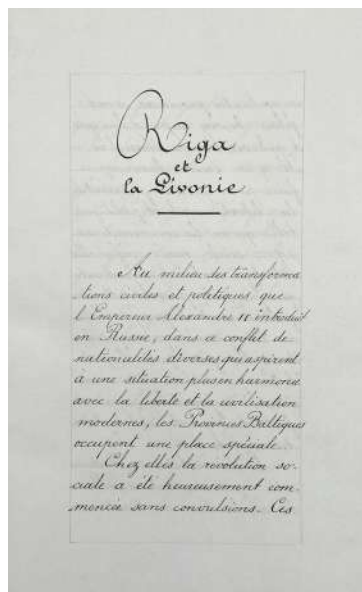 Riga
et
la Livonie
Au milieu des transforma
tions civiles et politiques que
l'Empereur Alexandre II introduit
en Russie, dans ce conflit de
nationalités diverses qui aspirent
à une situation plus en harmonie
avec la liberté et la civilisation
modernes, les Provinces Baltiques
occupent une place spéciale.
Chez elles la révolution so-
ciale a été heureusement com-
mencée sans convulsions. Ces